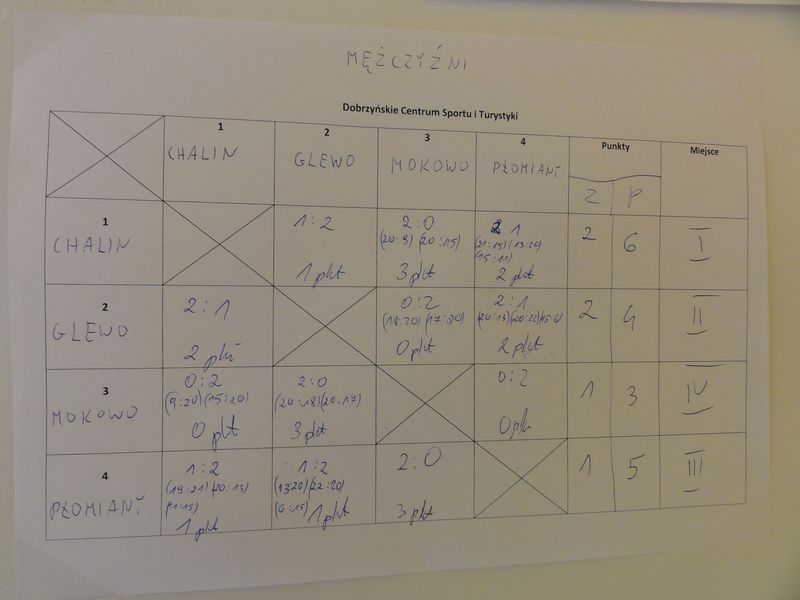 MĘŻCZYŹNI
Dobrzyńskie Centrum Sportu i Turystyki
1 2 3 4 Punkty Miejsce
CHALIN GLEWO MOKOWO PŁOMIANY
Z P
1
CHALIN
1:2
1 pkt
2:0
(20:9) (20:15)
3 pkt
2 1
(21:19) (13:20)
(15:11)
2 pkt
2 6 I
2
GLEWO
2:1
2 pkt
0:2
(18:20) (17:20)
0 pkt
2:1
(20:13) (20:22) (15:6)
2 pkt
2 4 II
3
MOKOWO
0:2
(9:20) (15:20)
0 pkt
2:0
(20:18) (20:17)
3 pkt
0:2
0 pkt
1 3 IV
4
PŁOMIANY
1:2
(19:21) (20:13)
(11:15)
1 pkt
1:2
(13:20) (22:20)
(6:15) 1 pkt
2:0
3 pkt
1 5 III